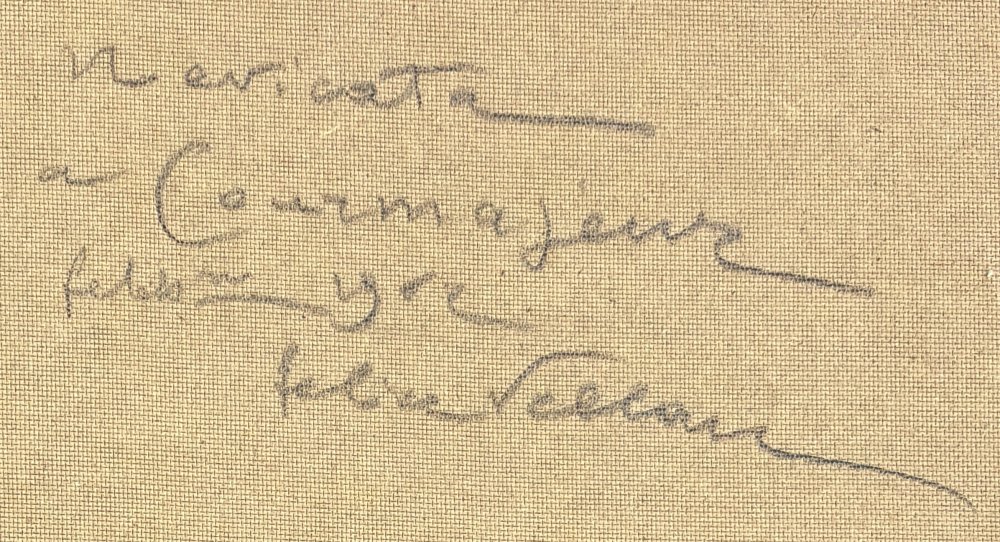 Nevicata
a Courmajeur
febb
felice Vellan